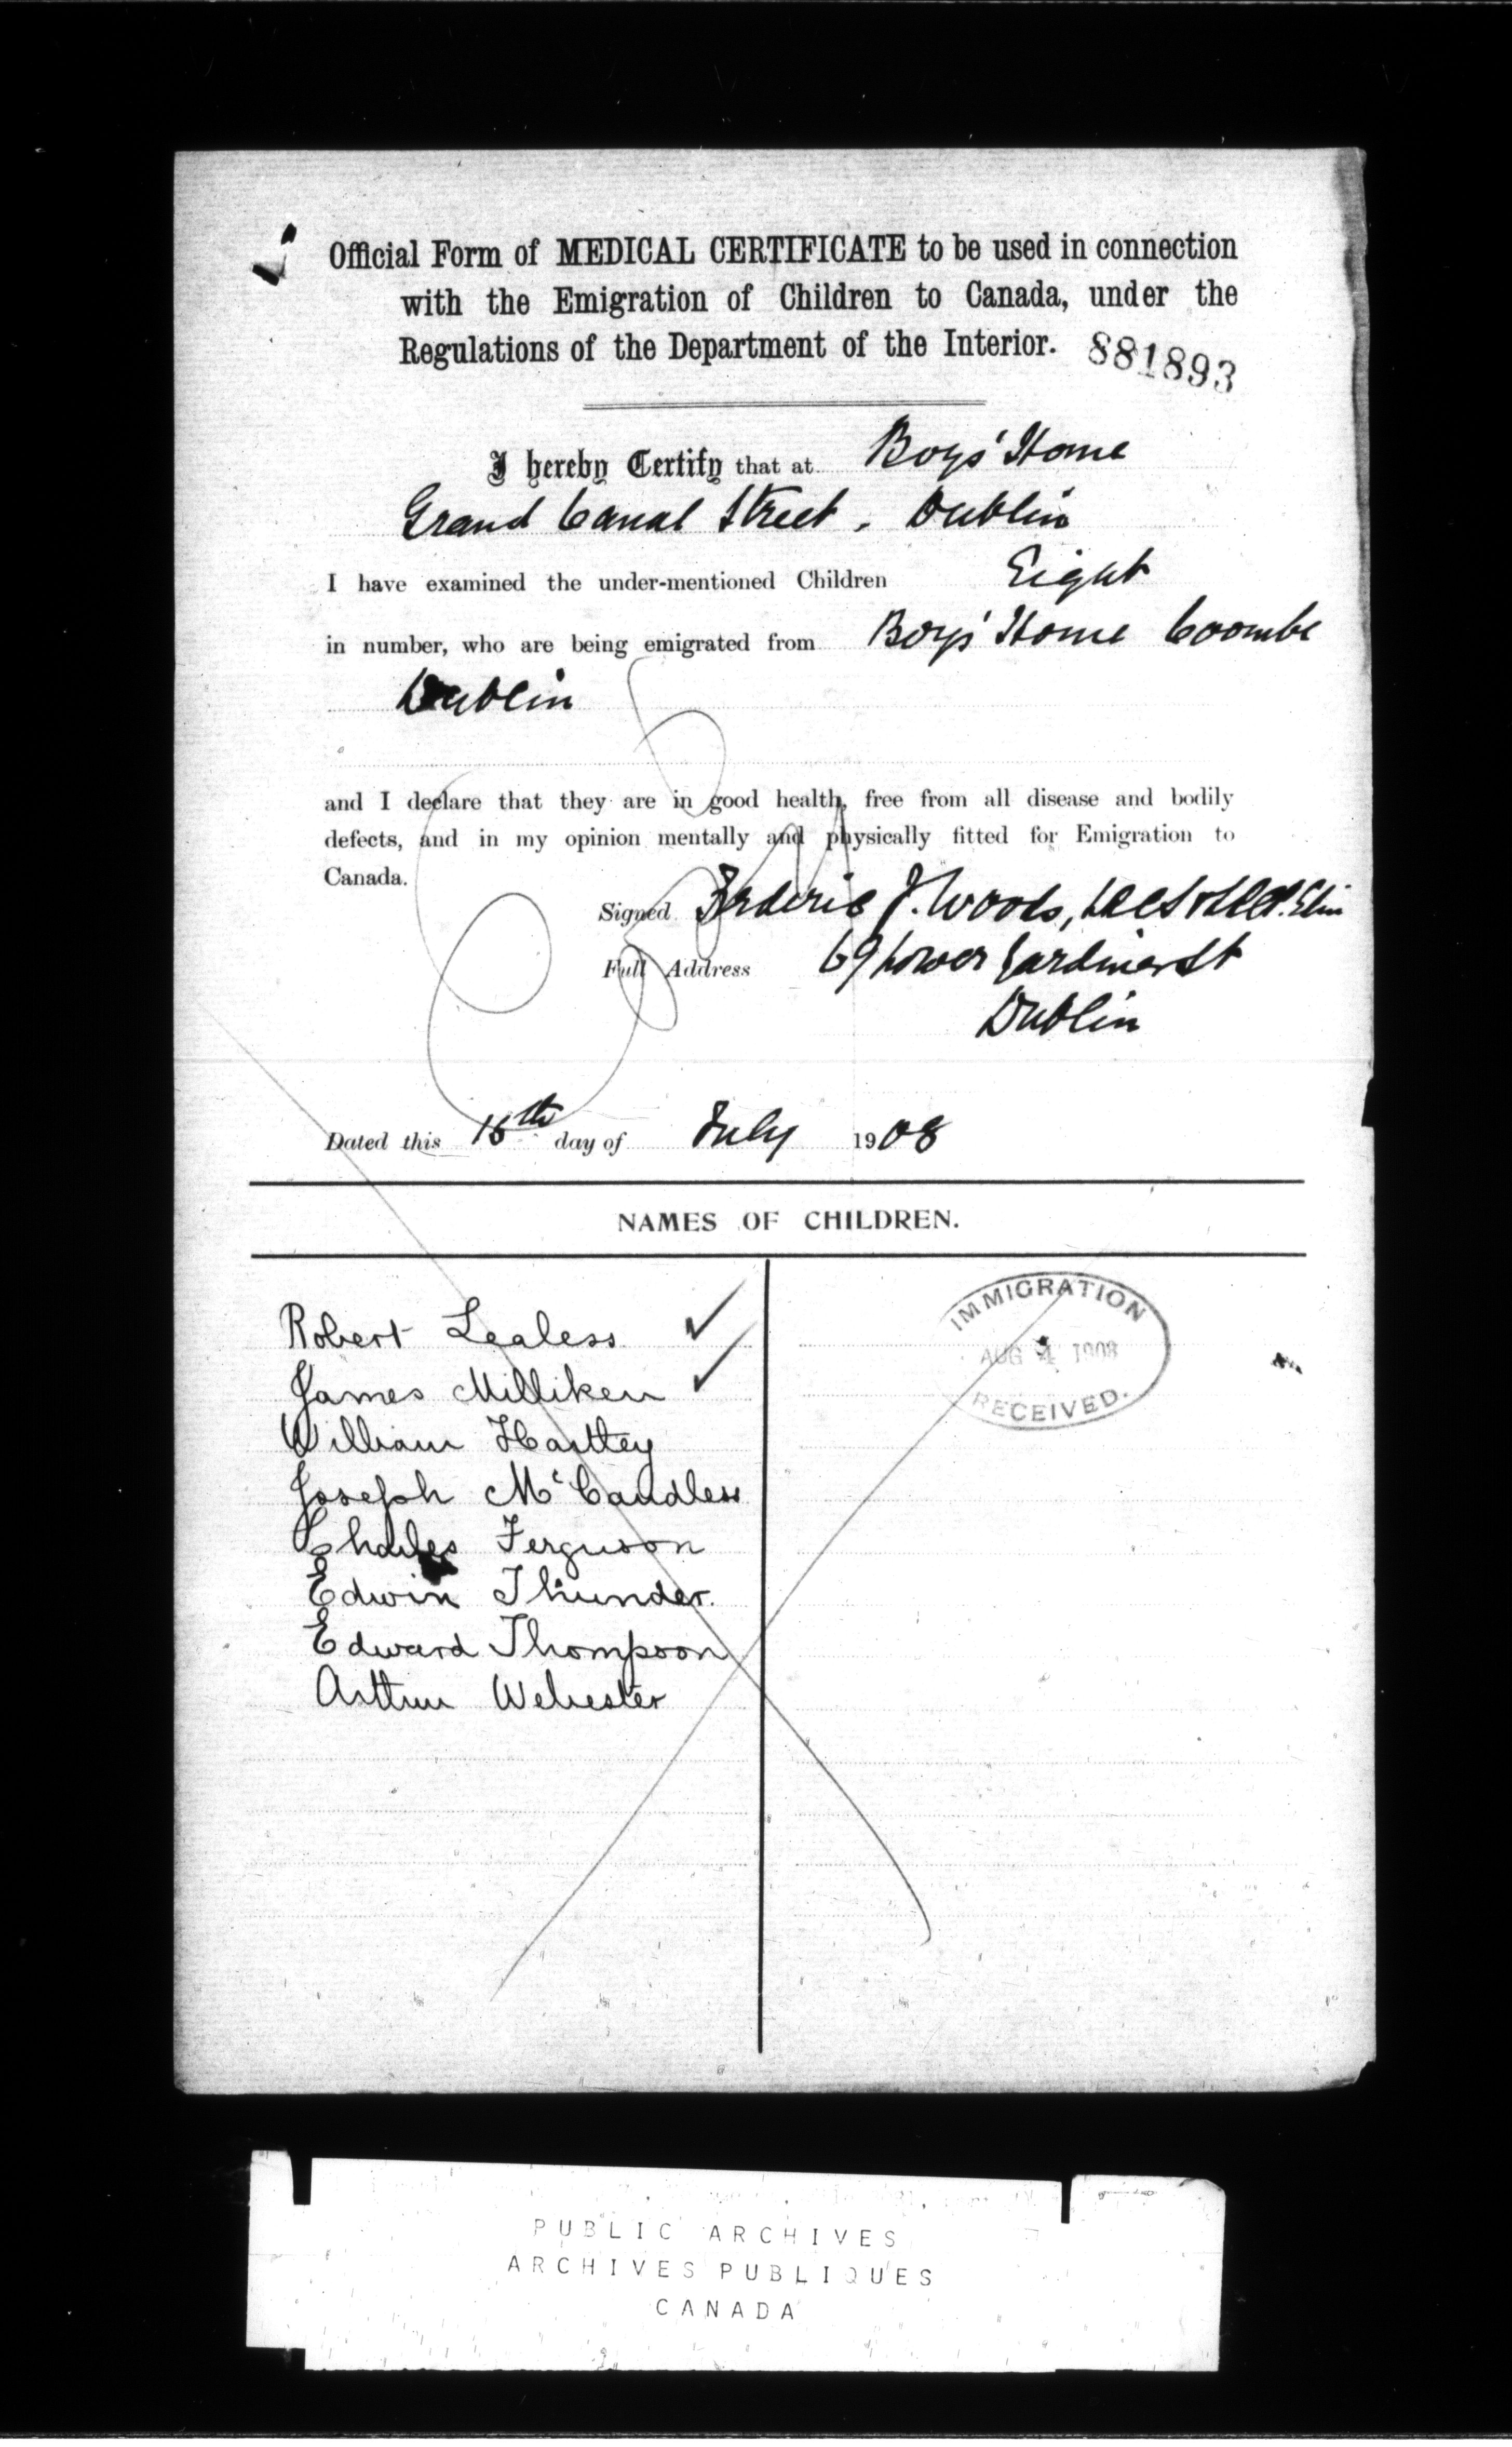 Official Form of MEDICAL CERTIFICATE to be used in connection
with the Emigration of Children to Canada, under the
Regulations of the Department of the Interior. 881893
I hereby Certify that at Boys' Home
Grand Canal Street, Dublin
I have examined the under-mentioned Children Eight
in number, who are being emigrated from Boys' Home Coombe
Dublin
and I declare that they are in good health, free from all disease and bodily
defects, and in my opinion mentally and physically fitted for Emigration to
Canada.
Signed Frederic J. Woods,
Full Address 69 Lower Gardiner St
Dublin
Dated this day of July 1908
NAMES OF CHILDREN.
IMMIGRATION
AUG 4 1908
RECEIVED.
Robert Lealess
James Milliken
William Hartley
Joseph McCandless
Charles Ferguson
Edwin Thunder.
Edward Thompson
Arthur Webester
PUBLIC ARCHIVES
ARCHIVES PUBLIQUES
CANADA